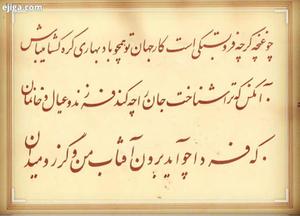 ejiga.com
چو غنچه گرچه فروبستگی است کار جهان تو همچو باد بهاری گره گشا میباش
آنکس که ترا شناخت جان را چه کند فرزند و عیال و خانمان
که فردا چو آید برون آفتاب من و گرز و میدان